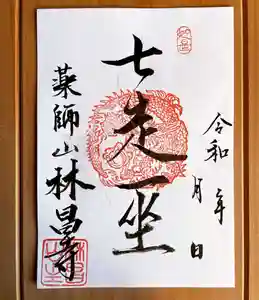 令和 年 月 日
七走一坐
薬師山林昌寺